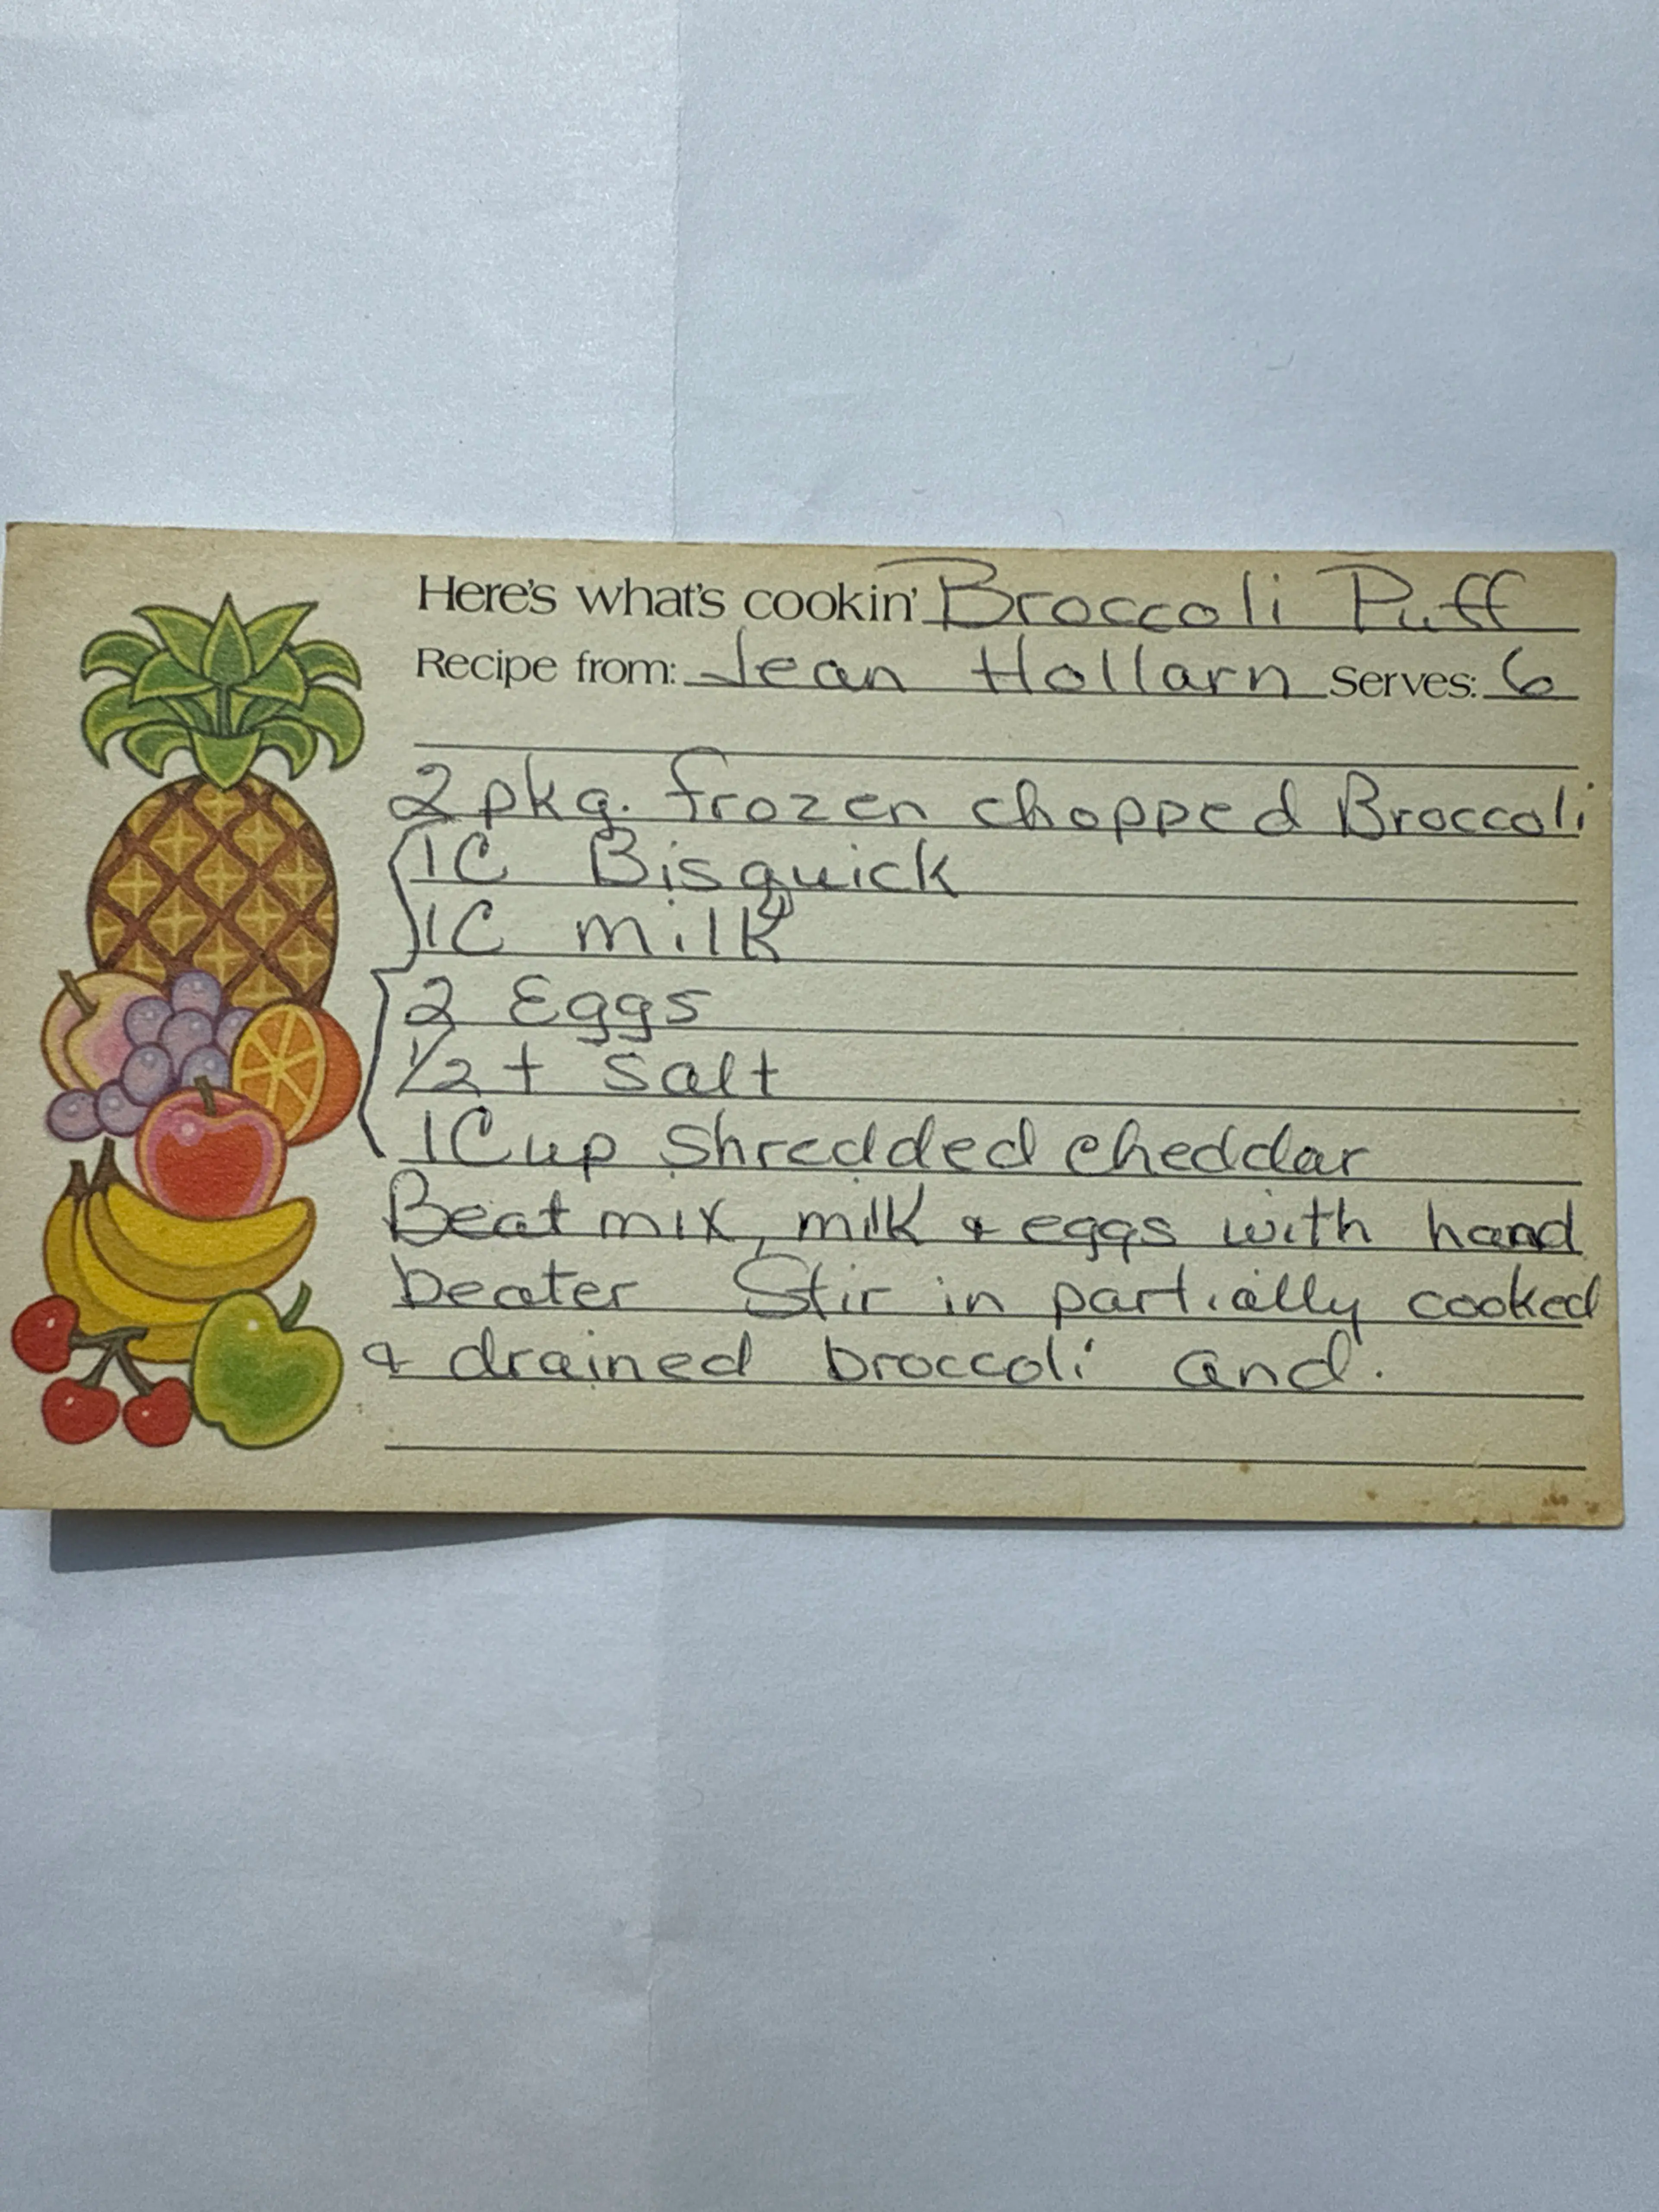 Here's what's cookin' Broccoli Puff
Recipe from: Jean Hollarn Serves: 6
2 pkg. frozen chopped Broccoli
1C Bisquick
1C milk
2 Eggs
1/2 t salt
1 Cup shredded cheddar
Beat mix, milk & eggs with hand
beater Stir in partially cooked
& drained broccoli and.